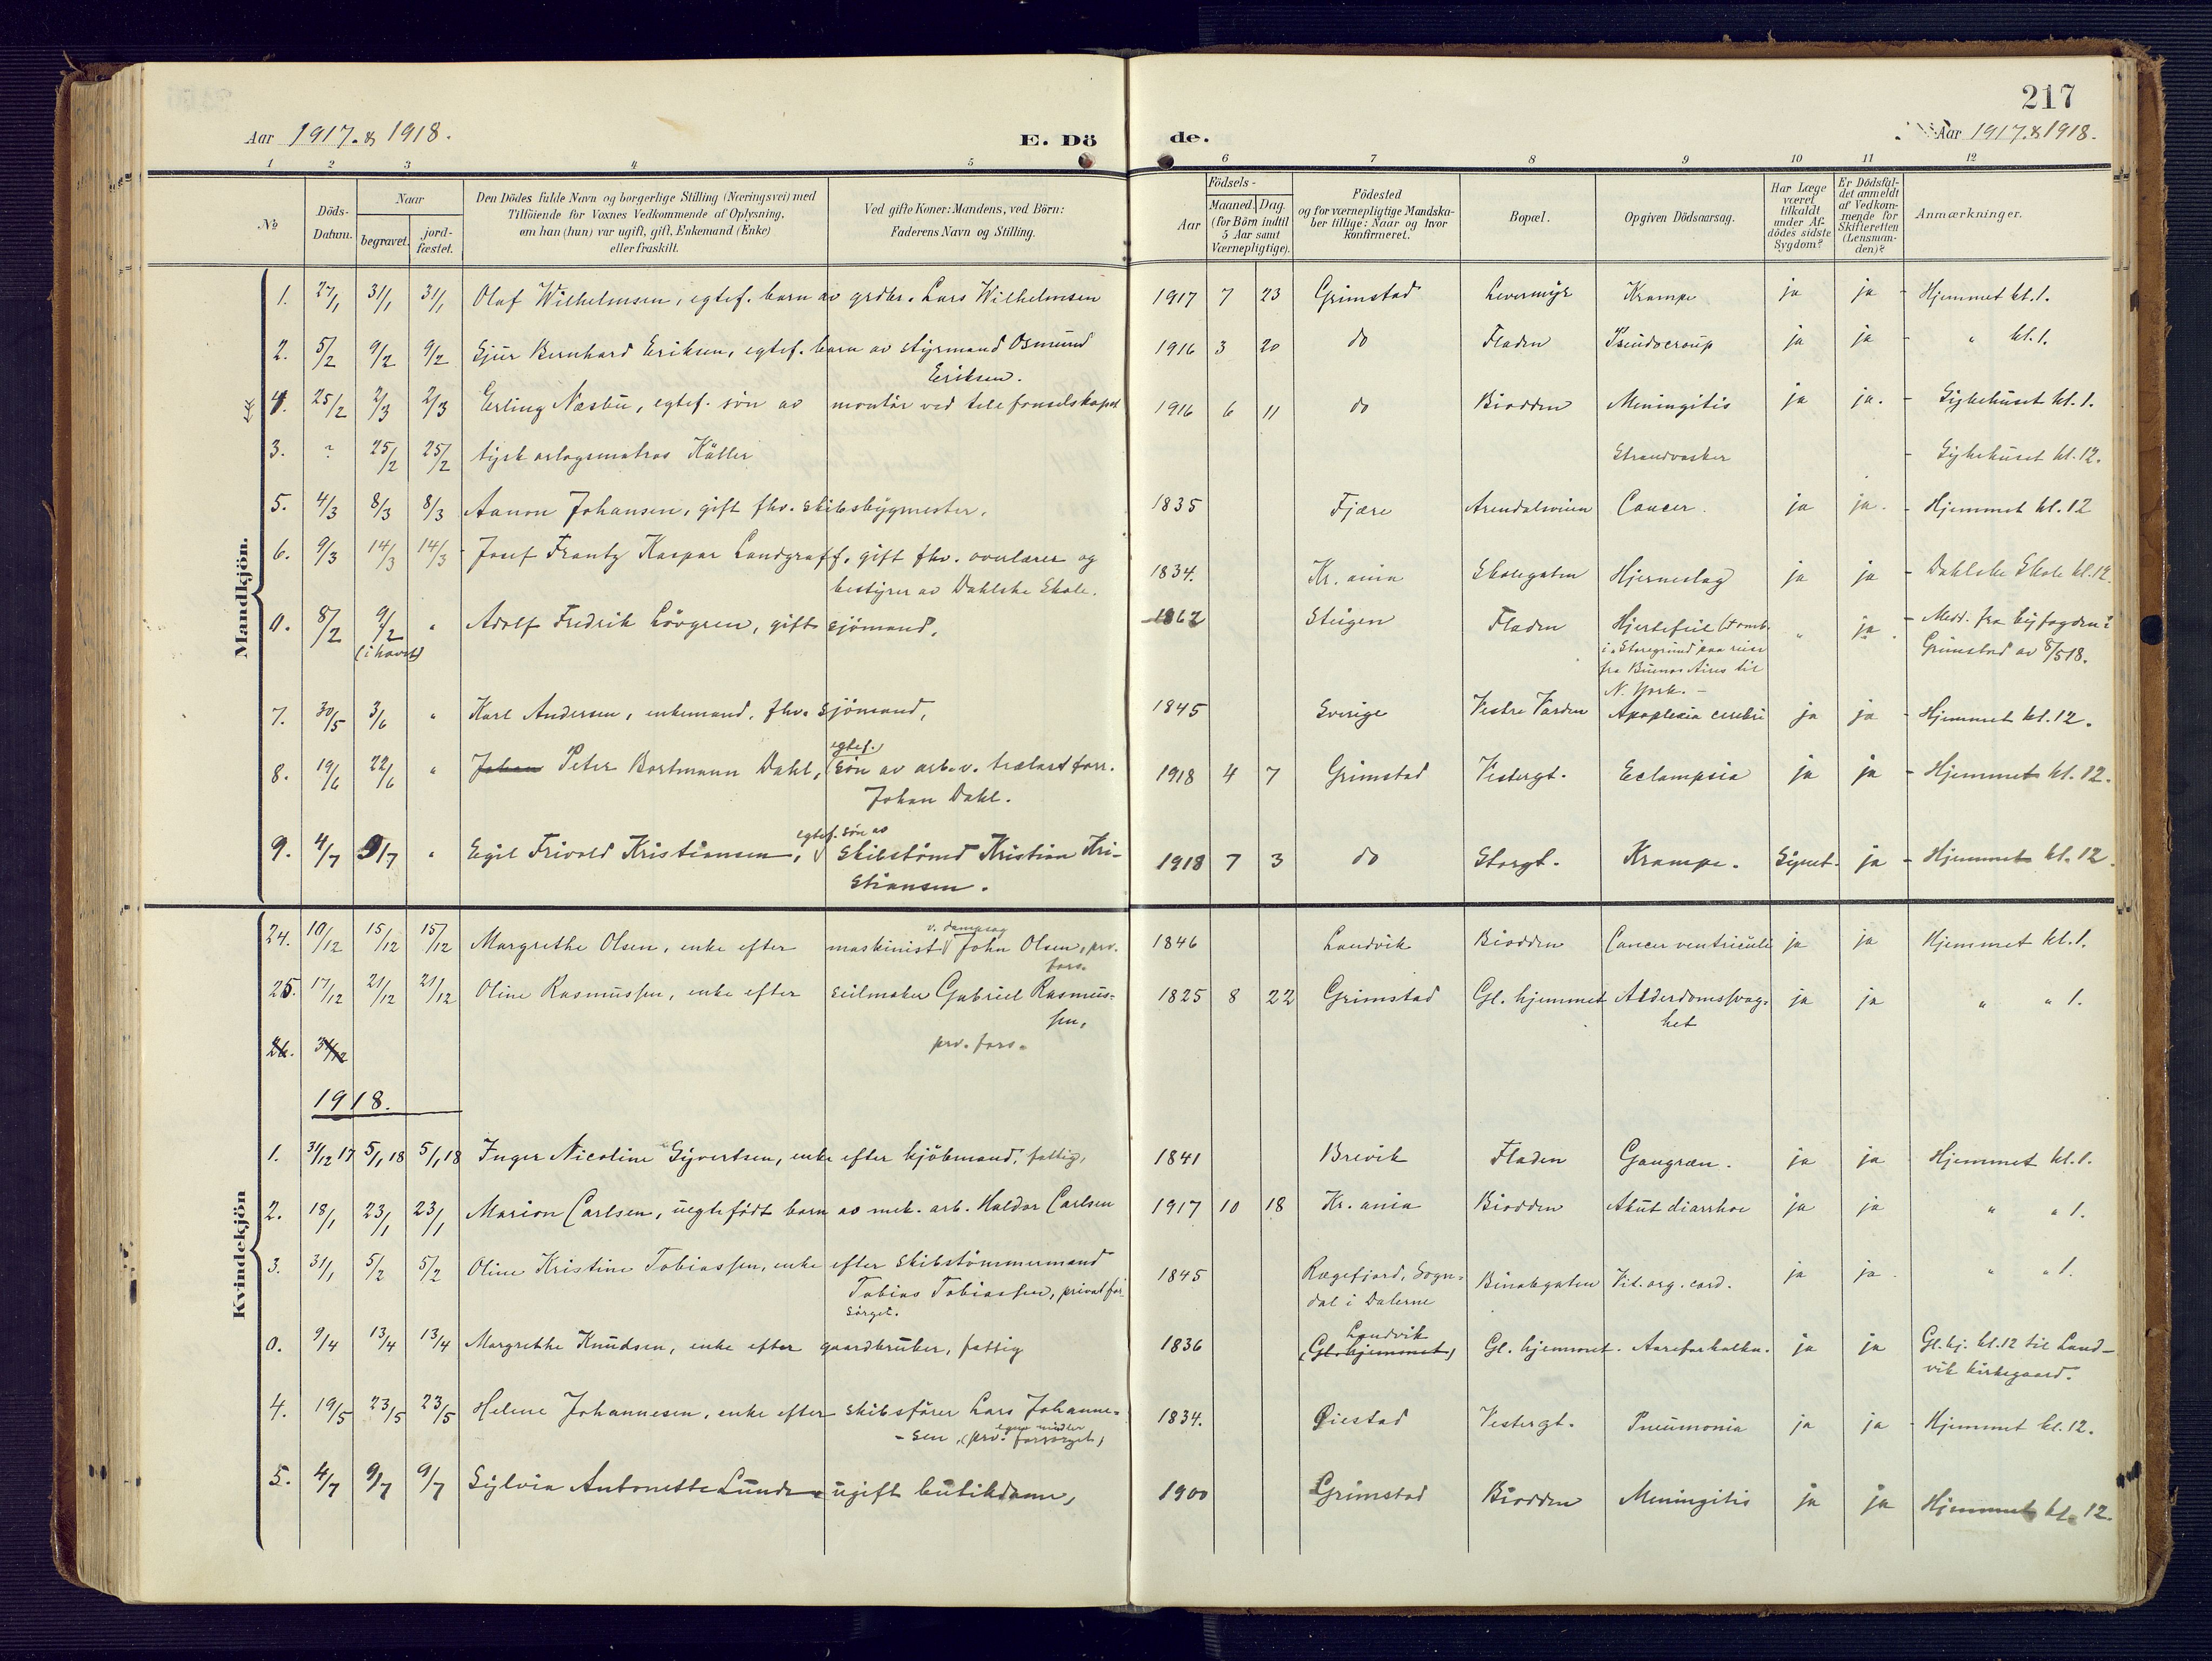 217
Aar 1917. & 1918. E. Dö de. Aar 1917. & 1918.
1 2 3 4 5 6 7 8 9 10 11 12
№ Döds-Datum. Naar begravet. jordfæstet. Den Dödes fulde Navn og borgerlige Stilling (Næringsvei) med Tilföiende for Voxnes Vedkommende af Oplysning, om han (hun) var ugift, gift, Enkemand (Enke) eller fraskilt. Ved gifte Koner: Mandens, ved Börn: Faderens Navn og Stilling. Födsels- Aar Maaned. Dag. (for Börn indtil 5 Aar samt Værnepligtige). Födested og for værnepligtige Mandskaber tillige: Naar og hvor konfirmeret. Bopæl. Opgiven Dödsaarsag. Har Læge været tilkaldt under Afdödes sidste Sygdom? Er Dödsfaldet anmeldt af Vedkommende for Skifteretten (Lensmanden)? Anmærkninger.
Mandkjön.
1. 27/1 31/1 31/1 Olaf Wilhelmsen, egtef. barn av grdbr. Lars Wilhelmsen 1917 7 23 Grimstad Levermyr Krampe ja ja - Hjemmet kl. 1.
2. 5/2 9/2 9/2 Sjur Bernhard Eriksen, egtef. barn av styrmand Osmund 1916 3 20 do Fladen Pseudocroup ja ja - " kl. 1.
Eriksen.
4. 25/2 2/3 2/3 Erling Næsbu, egtef. sön av montör ved telefonselskapet 1916 6 11 do Biodden Meningitis ja ja. - Sykehuset kl. 1.
3. ? 25/2 25/2 tysk orlogsmatros Käller Strandvasker - Sykehuset kl. 12.
5. 4/3 8/3 8/3 Aanon Johansen, gift fhv. skibsbygmester. 1835 Fjære Arendalsveien Cancer. ja ja. - Hjemmet kl. 12
6. 9/3 14/3 14/3 Josef Frantz Kaspar Landgraff, gift fhv. overlærer og 1834. Kr. ania Skolegaten Hjerneslag ja ja - Dahlske Skole kl. 12.
bestyrer av Dahlske Skole.
0. 8/2 9/2 " Adolf Fredrik Lövgren, gift sjömand, 1862 Steigen Fladen Hjertefeil (+ omb. " ja. - Medd. fra byfogden i
(i havet) i "Storegrund" paa reise Grimstad av 8/5 18.
fra Buenos Aires til
N. York. -
7. 30/5 3/6 " Karl Andersen, enkemand, fhv. sjömand, 1845 Sverige Vestre Varden Apoplexia cerebri ja ja - Hjemmet kl. 12.
egtef.
8. 19/6 22/6 " Johan Peter Bortmann Dahl, sön av arb. v. trælastforr. 1918 4 7 Grimstad Vestergt. Eclampsia ja ja - Hjemmet kl. 12.
Johan Dahl.
egtef. sön av
9. 4/7 9/7 " Egil Frivold Kristiansen, skibstömd Kristian Kri- 1918 7 3 do Storgt. Krampe. Synet. ja - Hjemmet kl. 12.
stiansen.
Kvindekjön
v. dampsag
24. 10/12 15/12 15/12 Margrethe Olsen, enke efter maskinist John Olsen, prv. 1846 Landvik Biodden Cancer ventriculi ja ja Hjemmet kl. 1.
fors.
25. 17/12 21/12 21/12 Oline Rasmussen, enke efter seilmaker Gabriel Rasmus- 1825 8 22 Grimstad Gl. hjemmet Alderdomssvag- ja ja " " 1.
sen, het
26. 31/12 prv. fors.
1918.
1. 31/12 17 5/1 18 5/1 18 Inger Nicoline Syvertsen, enke efter kjöbmand, fattig, 1841 Brevik Fladen Gangræn. ja ja Hjemmet kl. 1.
2. 18/1 23/1 23/1 Marion Carlsen, uegtefödt barn av mek. arb. Haldor Carlsen 1917 10 18 Kr. ania Biodden Akut diarrhoe ja ja " " 1.
3. 31/1 5/2 5/2 Oline Kristine Tobiassen, enke efter skibstömmermand 1845 Rægefjord, Sogn- Binabgaten Vit. org. cord. ja ja. " " 1.
Tobias Tobiassen, privat for- dal i Dalerne
sörget.
Landvik
0. 9/4 13/4 13/4 Margrethe Knudsen, enke efter gaardbruker, fattig 1836 (Gl. hjemmet) Gl. hjemmet. Aareforkalkn. ja ja Gl. hj. kl. 12 til Land-
vik kirkegaard.
4. 19/5 23/5 23/5 Helene Johannesen, enke efter skibsförer Lars Johanne- 1834. Øiestad Vestergt. Pneumonia ja ja - Hjemmet kl. 12.
egne midler
- sen, (prv. forsörget)
5. 4/7 9/7 9/7 Sylvia Antonette Lunde ugift butikdame, 1900 Grimstad Biodden Meningitis ja ja Hjemmet kl. 12.